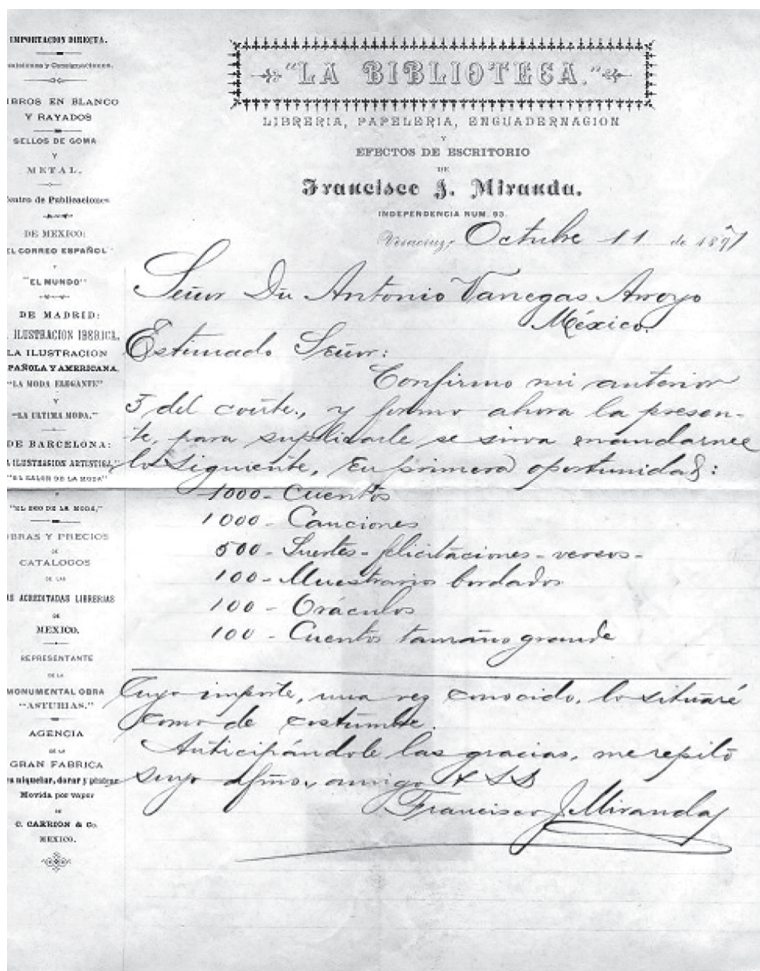 IMPORTACION DIRECTA.
misiones y Consignaciones.
BROS EN BLANCO
Y RAYADOS
SELLOS DE GOMA
Y
METAL.
entro de Publicaciones
DE MEXICO:
EL CORREO ESPAÑOL"
Y
"EL MUNDO"
DE MADRID:
ILUSTRACION IBERICA,
LA ILUSTRACION
PAÑOLA Y AMERICANA,
"LA MODA ELEGANTE"
Y
"LA ULTIMA MODA."
DE BARCELONA:
ILUSTRACION ARTISTICA,"
"EL SALON DE LA MODA"
Y
"EL ECO DE LA MODA,"
BRAS Y PRECIOS
DE
CATALOGOS
DE LAS
AS ACREDITADAS LIBRERIAS
DE
MEXICO.
REPRESENTANTE
DE LA
MONUMENTAL OBRA
"ASTURIAS."
AGENCIA
DE LA
GRAN FABRICA
ra niquelar, dorar y platear
Movida por vapor
DE
C. CARRION & Co.
MEXICO.
"LA BIBLIOTECA."
LIBRERIA, PAPELERIA, ENCUADERNACION
Y
EFECTOS DE ESCRITORIO
DE
Francisco J. Miranda.
INDEPENDENCIA NUM. 93.
Veracruz, Octubre 11 de 1897
Señor Dn Antonio Vanegas Arroyo
México.
Estimado Señor:
Confirmo mi anterior
5 del corrte., y formo ahora la presen-
te, para suplicarle se sirva mandarme
lo siguiente, en primera oportunidad:
1000 - Cuentos
1000 - Canciones
500 - Suertes - felicitaciones - versos -
100 - Muestrario bordados
100 - Oráculos
100 - Cuentos tamaño grande
Cuyo importe, una vez conocido, lo situaré
como de costumbre.
Anticipándole las gracias, me repito
suyo afmo. amigo y SS
Francisco J. Miranda